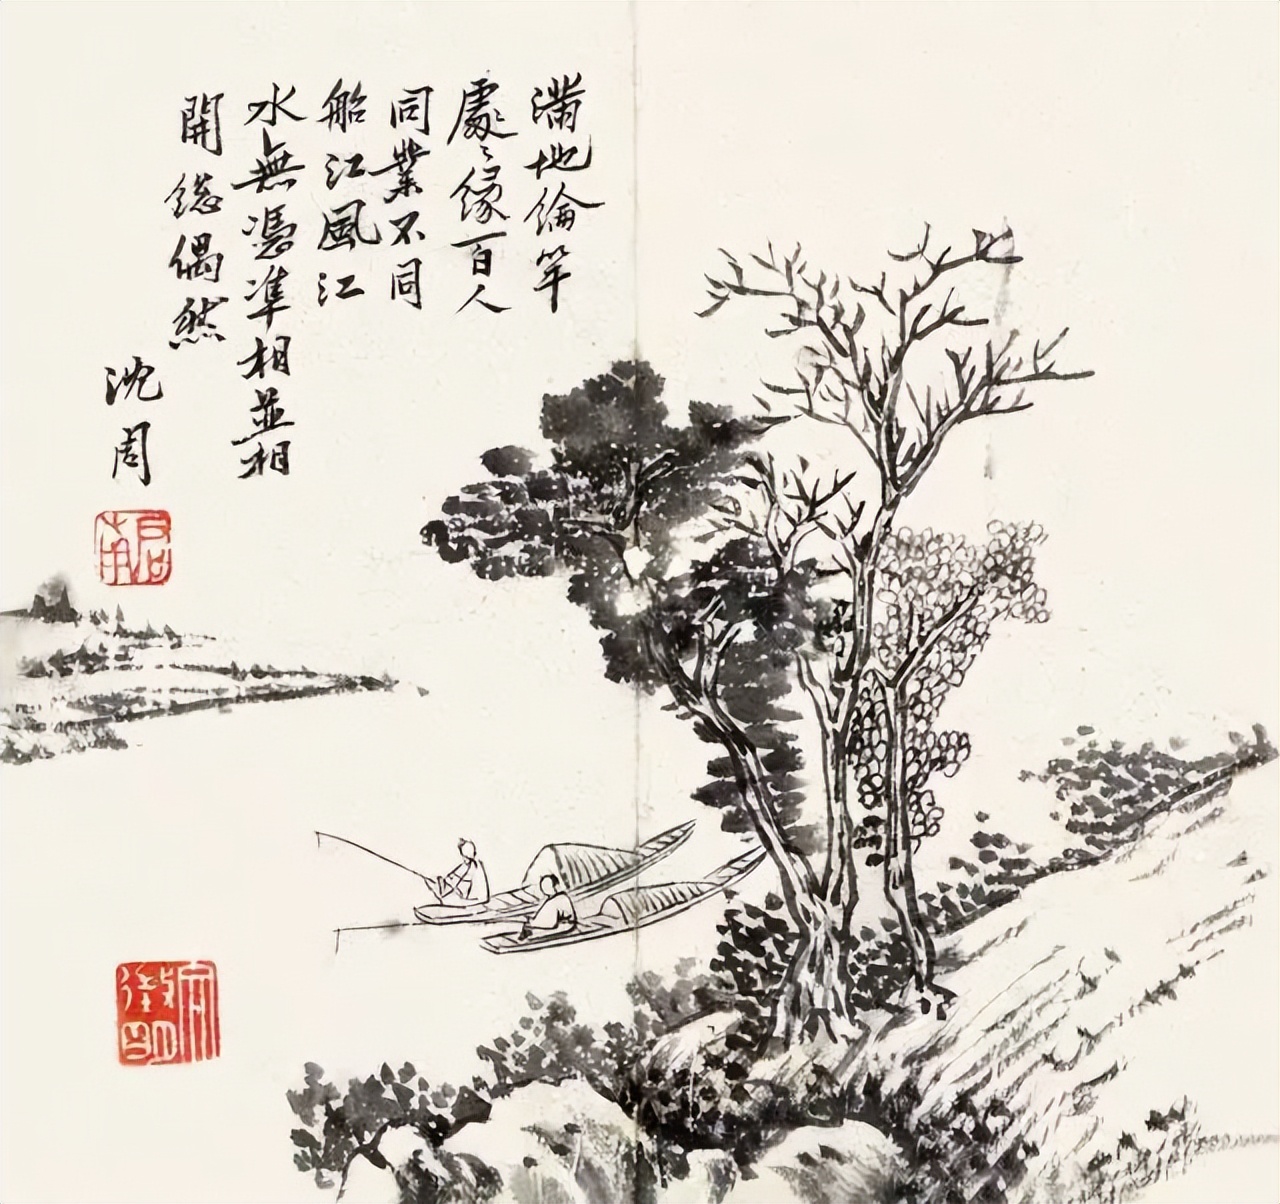 滿地綸竿
處〻緣百人
同業不同
船江風江
水無憑準相並相
開總偶然
沈周
啟南